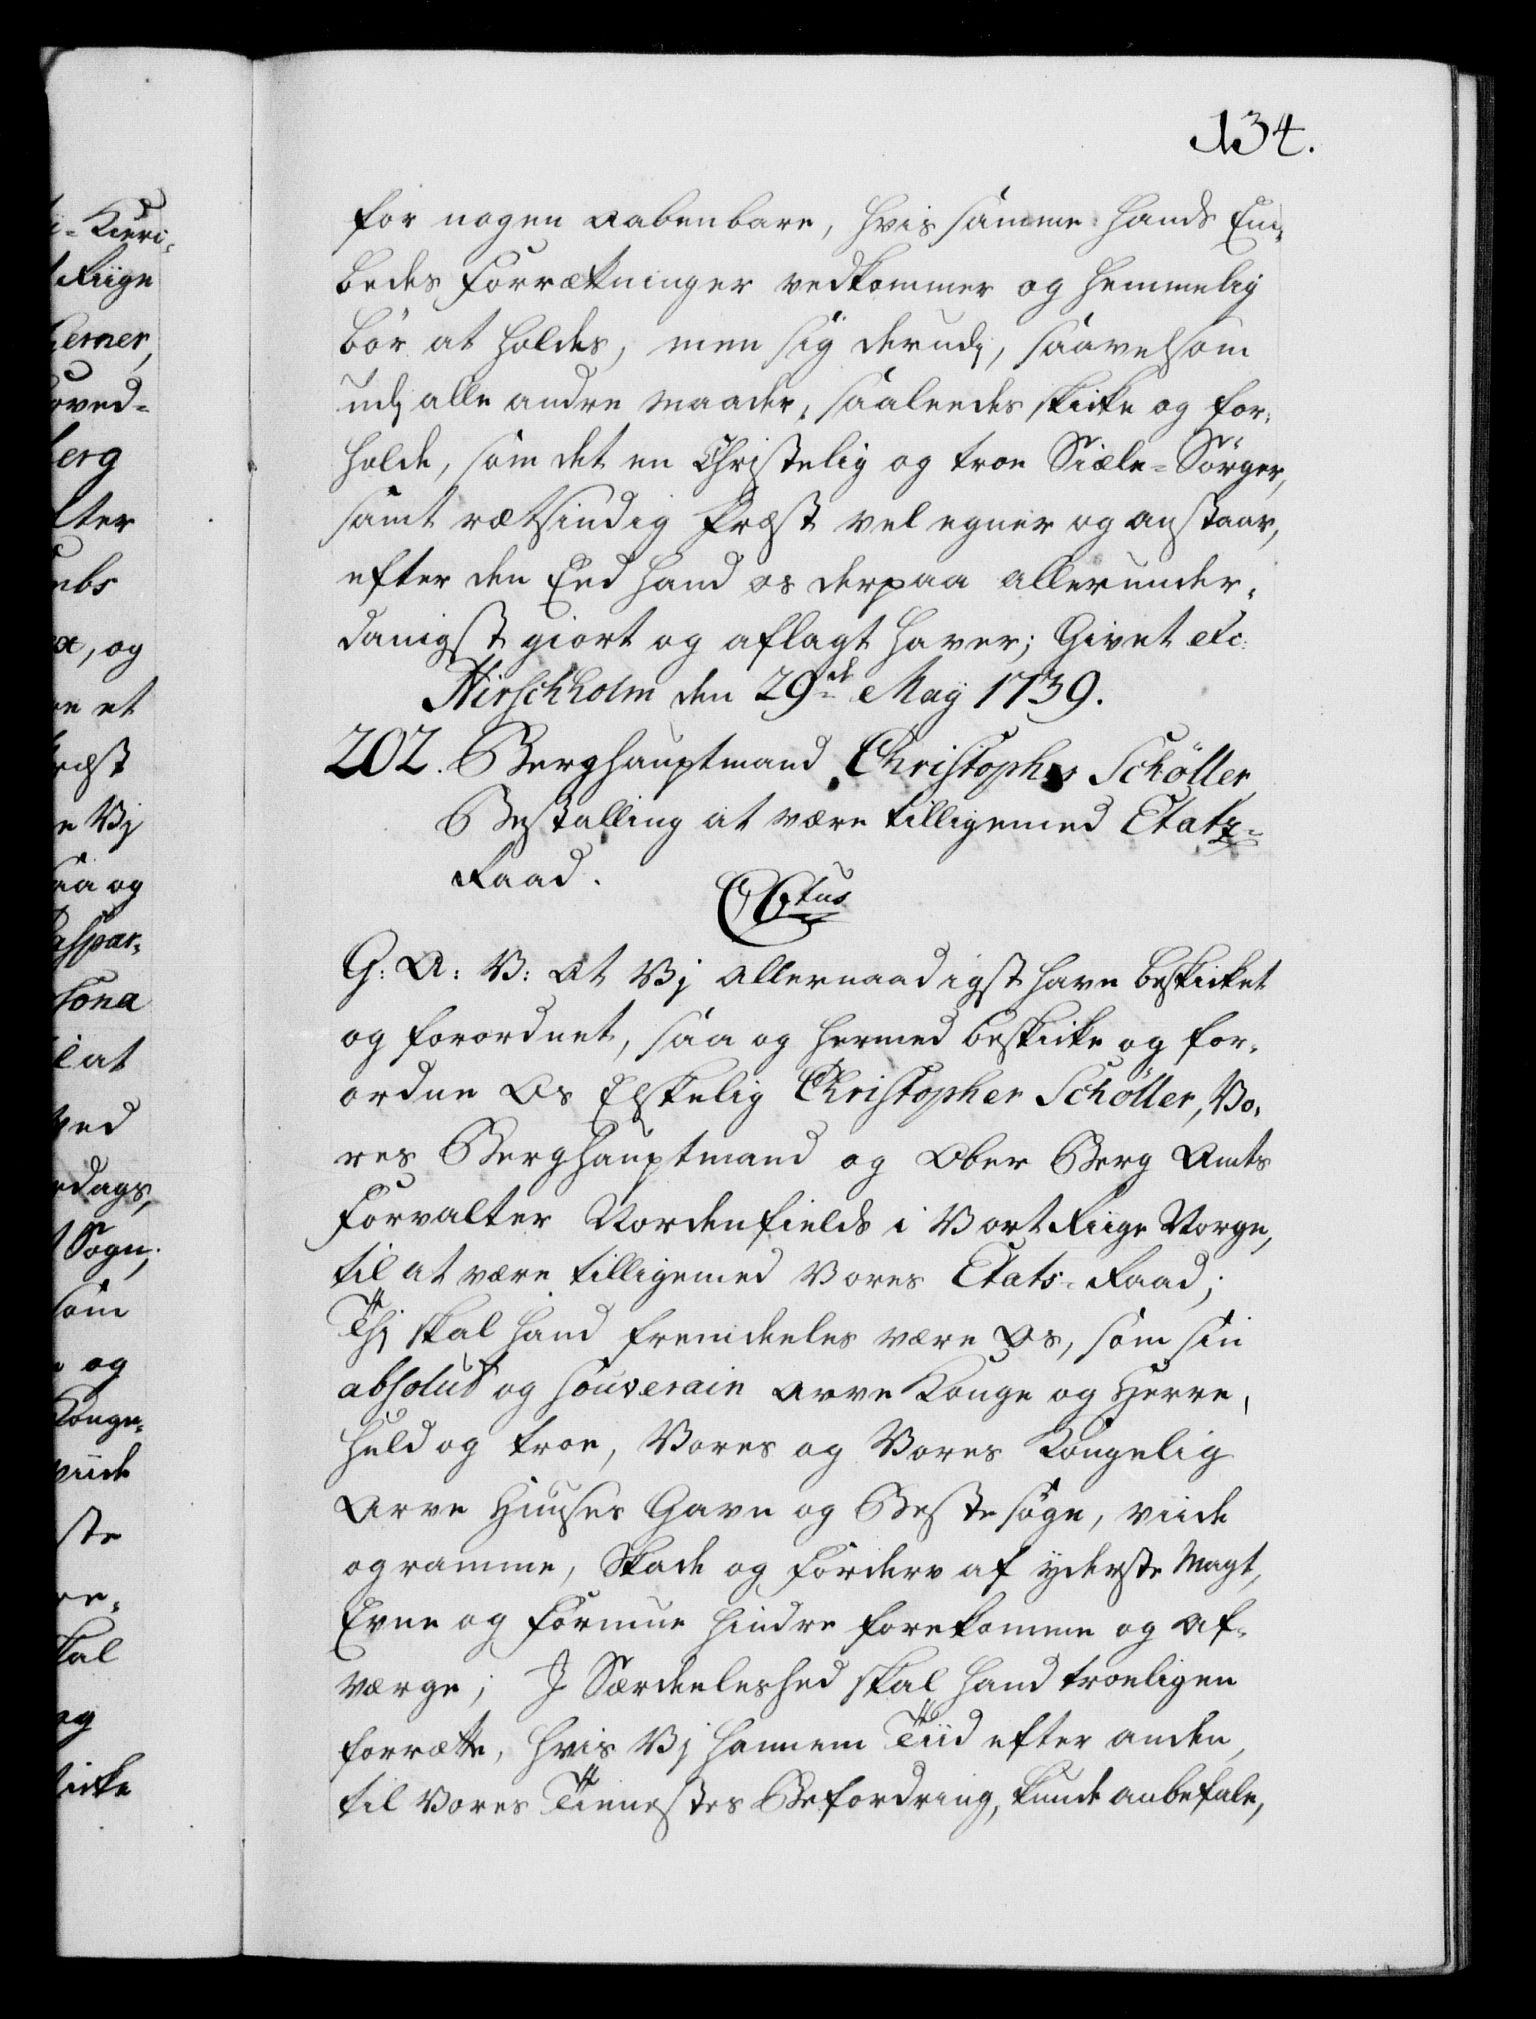 134.
for nogen aabenbare, hvis samme hands Em-
bedes Forrætninger vedkommer og hemmelig
bör at holdes, men sig derudj, saavelsom
udj alle andre maader, saaleedes skicke og for-
holde, som det en Christelig og troe Siæle-Sörger,
samt rætsindig Præst vel egner og anstaar,
efter den Eed hand os derpaa allerunder-
danigst giort og aflagt haver; Givet etc:
Hirschholm den 29de May 1739.
202. Berghauptmand Christopher Schöller
Bestalling at være tilligemed Etatz-
Raad.
C6tus
G: A: V: At Vj allernaadigst have beskicket
og forordnet, saa og hermed beskicke og for-
ordne Os Elskelig Christopher Schöller, Vo-
res Berghauptmand og Ober Berg Amts
Forvalter Nordenfields i Vort Riige Norge,
til at være tilligemed Vores Etats-Raad;
Thj skal hand fremdeeles være Os, som sin
absolut og souverain Arve Konge og Herre,
huld og troe, Vores og Vores Kongelig
Arve Huuses Gavn og Beste söge, viide
og ramme, Skade og Forderv af yderste Magt,
Evne og Formue hindre forekomme og af-
værge; J Særdeeleshed skal hand troeligen
forrætte, hvis Vj hannem Tiid efter anden,
til Vores Tienestes Befordring, kunde anbefale,
y-Kieri-
Riige
erner,
oved-
erg
lter
ebs
, og
et
ræst
Vj
aa og
Caspar-
sona
at
ved
edags,
Sogn;
som
og
Konge-
viide
ste
re-
skal
og
skicke